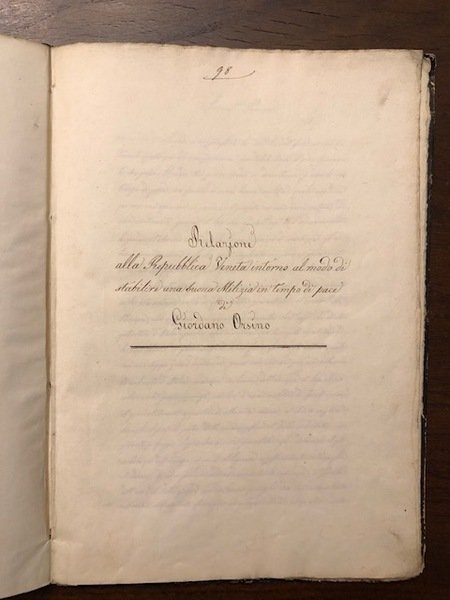 98
Relazione
alla Repubblica Veneta intorno al modo di
stabilire una buona Milizia in tempo di pace
di
Giordano Orsino